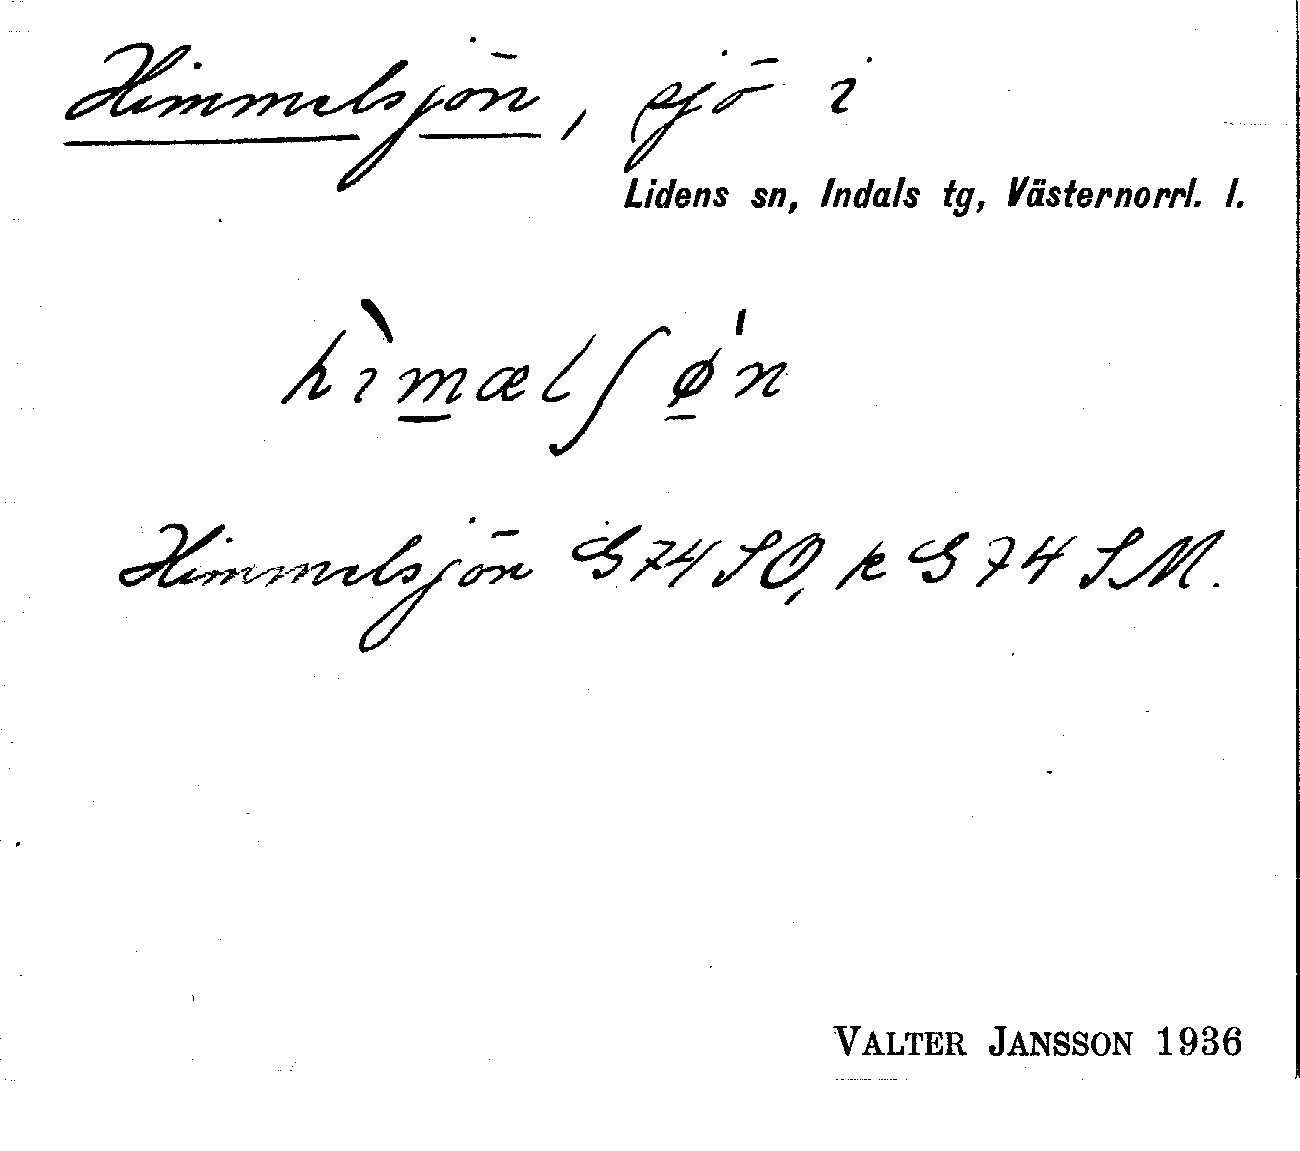 Himmelsjön, sjö i
Lidens sn, Indals tg, Västernorrl. l.
hìmælʃǿn
Himmelsjön G 74 SO, k G 74 SM.
VALTER JANSSON 1936